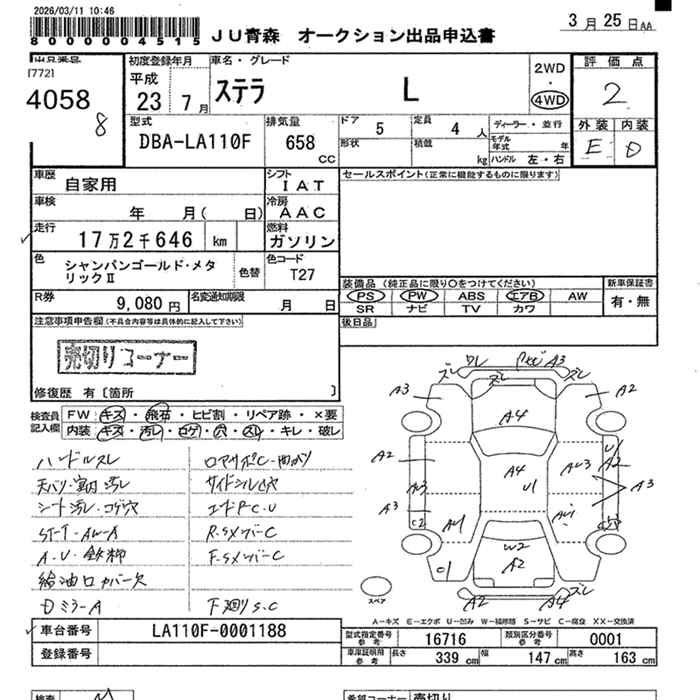 2026/03/11 10:46
8000004515
JU青森 オークション出品申込書
3月25日AA
出品番号
[772]
4058
8
初度登録年月
平成
23 7月
車名・グレード
ステラ L
2WD
・
4WD
評価点
2
外装 内装
E D
型式
DBA-LA110F
排気量
658
cc
ドア 5
定員 4人
形状
積載 kg
ディーラー・並行
モデル年式 年
ハンドル 左・右
車歴
自家用
シフト
IAT
セールスポイント(正常に機能するものに限ります)
車検
年 月( 日)
冷房
AAC
走行
17万2千646 km
燃料
ガソリン
色
シャンパンゴールド・メタリックⅡ
色替
色コード
T27
装備品(純正品に限り○をつけてください)
PS PW ABS エアB AW
SR ナビ TV カワ
新車保証書
有・無
R券
9,080円
名変通知期限
月 日
後日品
注意事項申告欄(不具合内容等は具体的に記入して下さい)
売切りコーナー
修復歴 有〔箇所 〕
検査員
記入欄
FW キズ・飛石・ヒビ割・リペア跡・×要
内装 キズ・汚レ・コゲ・穴・スレ・キレ・破レ
ハンドルスレ
天バリ・室内汚レ
シート汚レ・コゲ穴
A・U・鉄粉
給油口カバー欠
DミラーA
ロアサポC・曲がり
サイドシルC穴
R.SメンバーC
F.SメンバーC
F廻りS.C
ズレ
ズレ
A3
A3
A2
A4
A2
A4
U1
A2
A3
A3
C2
W2
A2
C1
A2
A4
ズレ
スペア
A-キズ E-エクボ U-凹み W-補修跡 S-サビ C-腐食 XX-交換済
車台番号
LA110F-0001188
登録番号
型式指定番号
参考
16716
類別区分番号
参考
0001
車庫証明用
参考
長さ 339 cm
幅 147 cm
高さ 163 cm
検査
希望コーナー 売切り